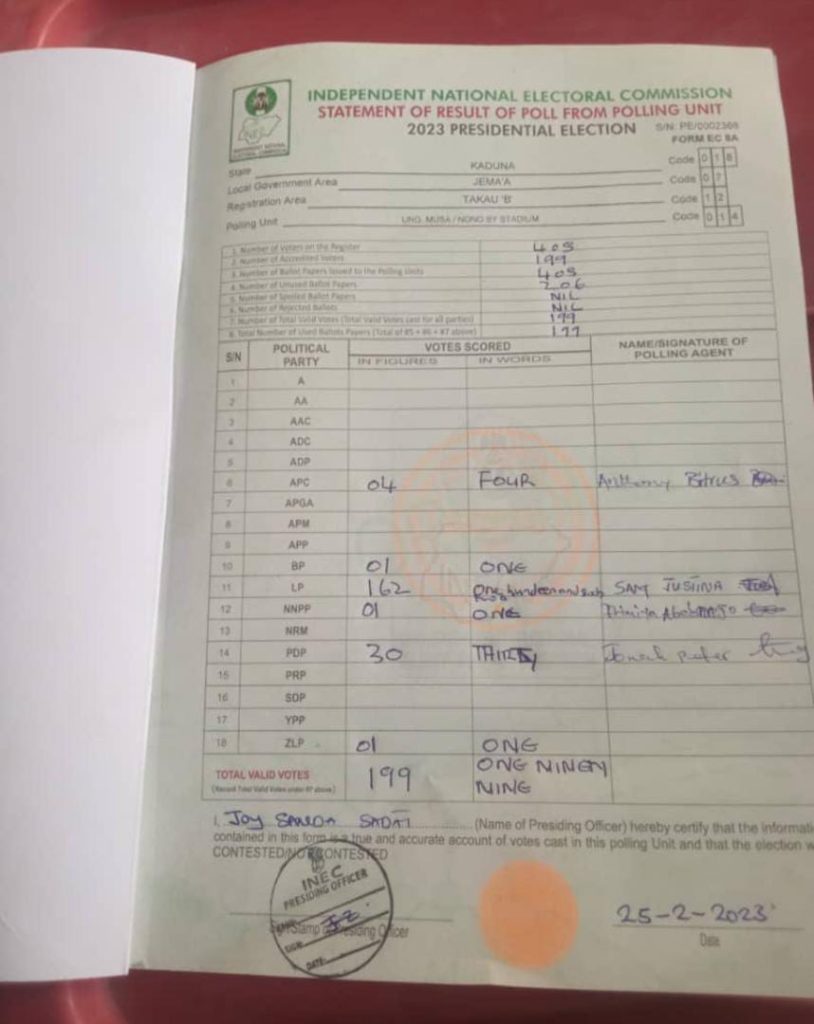 INDEPENDENT NATIONAL ELECTORAL COMMISSION
STATEMENT OF RESULT OF POLL FROM POLLING UNIT
2023 PRESIDENTIAL ELECTION S/N: PE/0002366
FORM EC 8A
State KADUNA Code 0 1 8
Local Government Area JEMA'A Code 0 7
Registration Area TAKAU 'B' Code 1 2
Polling Unit UNG. MUSA / NONG BY STADIUM Code 0 1 4
1. Number of Voters on the Register 405
2. Number of Accredited Voters 199
3. Number of Ballot Papers Issued to the Polling Units 405
4. Number of Unused Ballot Papers 206
5. Number of Spoiled Ballot Papers NIL
6. Number of Rejected Ballots NIL
7. Number of Total Valid Votes (Total Valid Votes cast for all parties) 199
8. Total Number of Used Ballots Papers (Total of #5 + #6 + #7 above) 199
S/N POLITICAL PARTY VOTES SCORED NAME/SIGNATURE OF POLLING AGENT
IN FIGURES IN WORDS
1 A
2 AA
3 AAC
4 ADC
5 ADP
6 APC 04 FOUR Anthony Bitrus
7 APGA
8 APM
9 APP
10 BP 01 ONE
11 LP 162 SAM JUSTINA
12 NNPP 01 ONE
13 NRM
14 PDP 30 THIRTY Jonah peter
15 PRP
16 SDP
17 YPP
18 ZLP 01 ONE
TOTAL VALID VOTES 199 ONE NINEN
(Record Total Valid Votes under #7 above) NINE
I, Joy SANDA SADAI (Name of Presiding Officer) hereby certify that the informati
contained in this form is a true and accurate account of votes cast in this polling Unit and that the election w
CONTESTED/NOT CONTESTED
INEC
PRESIDING OFFICER
SIGN
DATE
Sign/Stamp of Presiding Officer
25-2-2023
Date